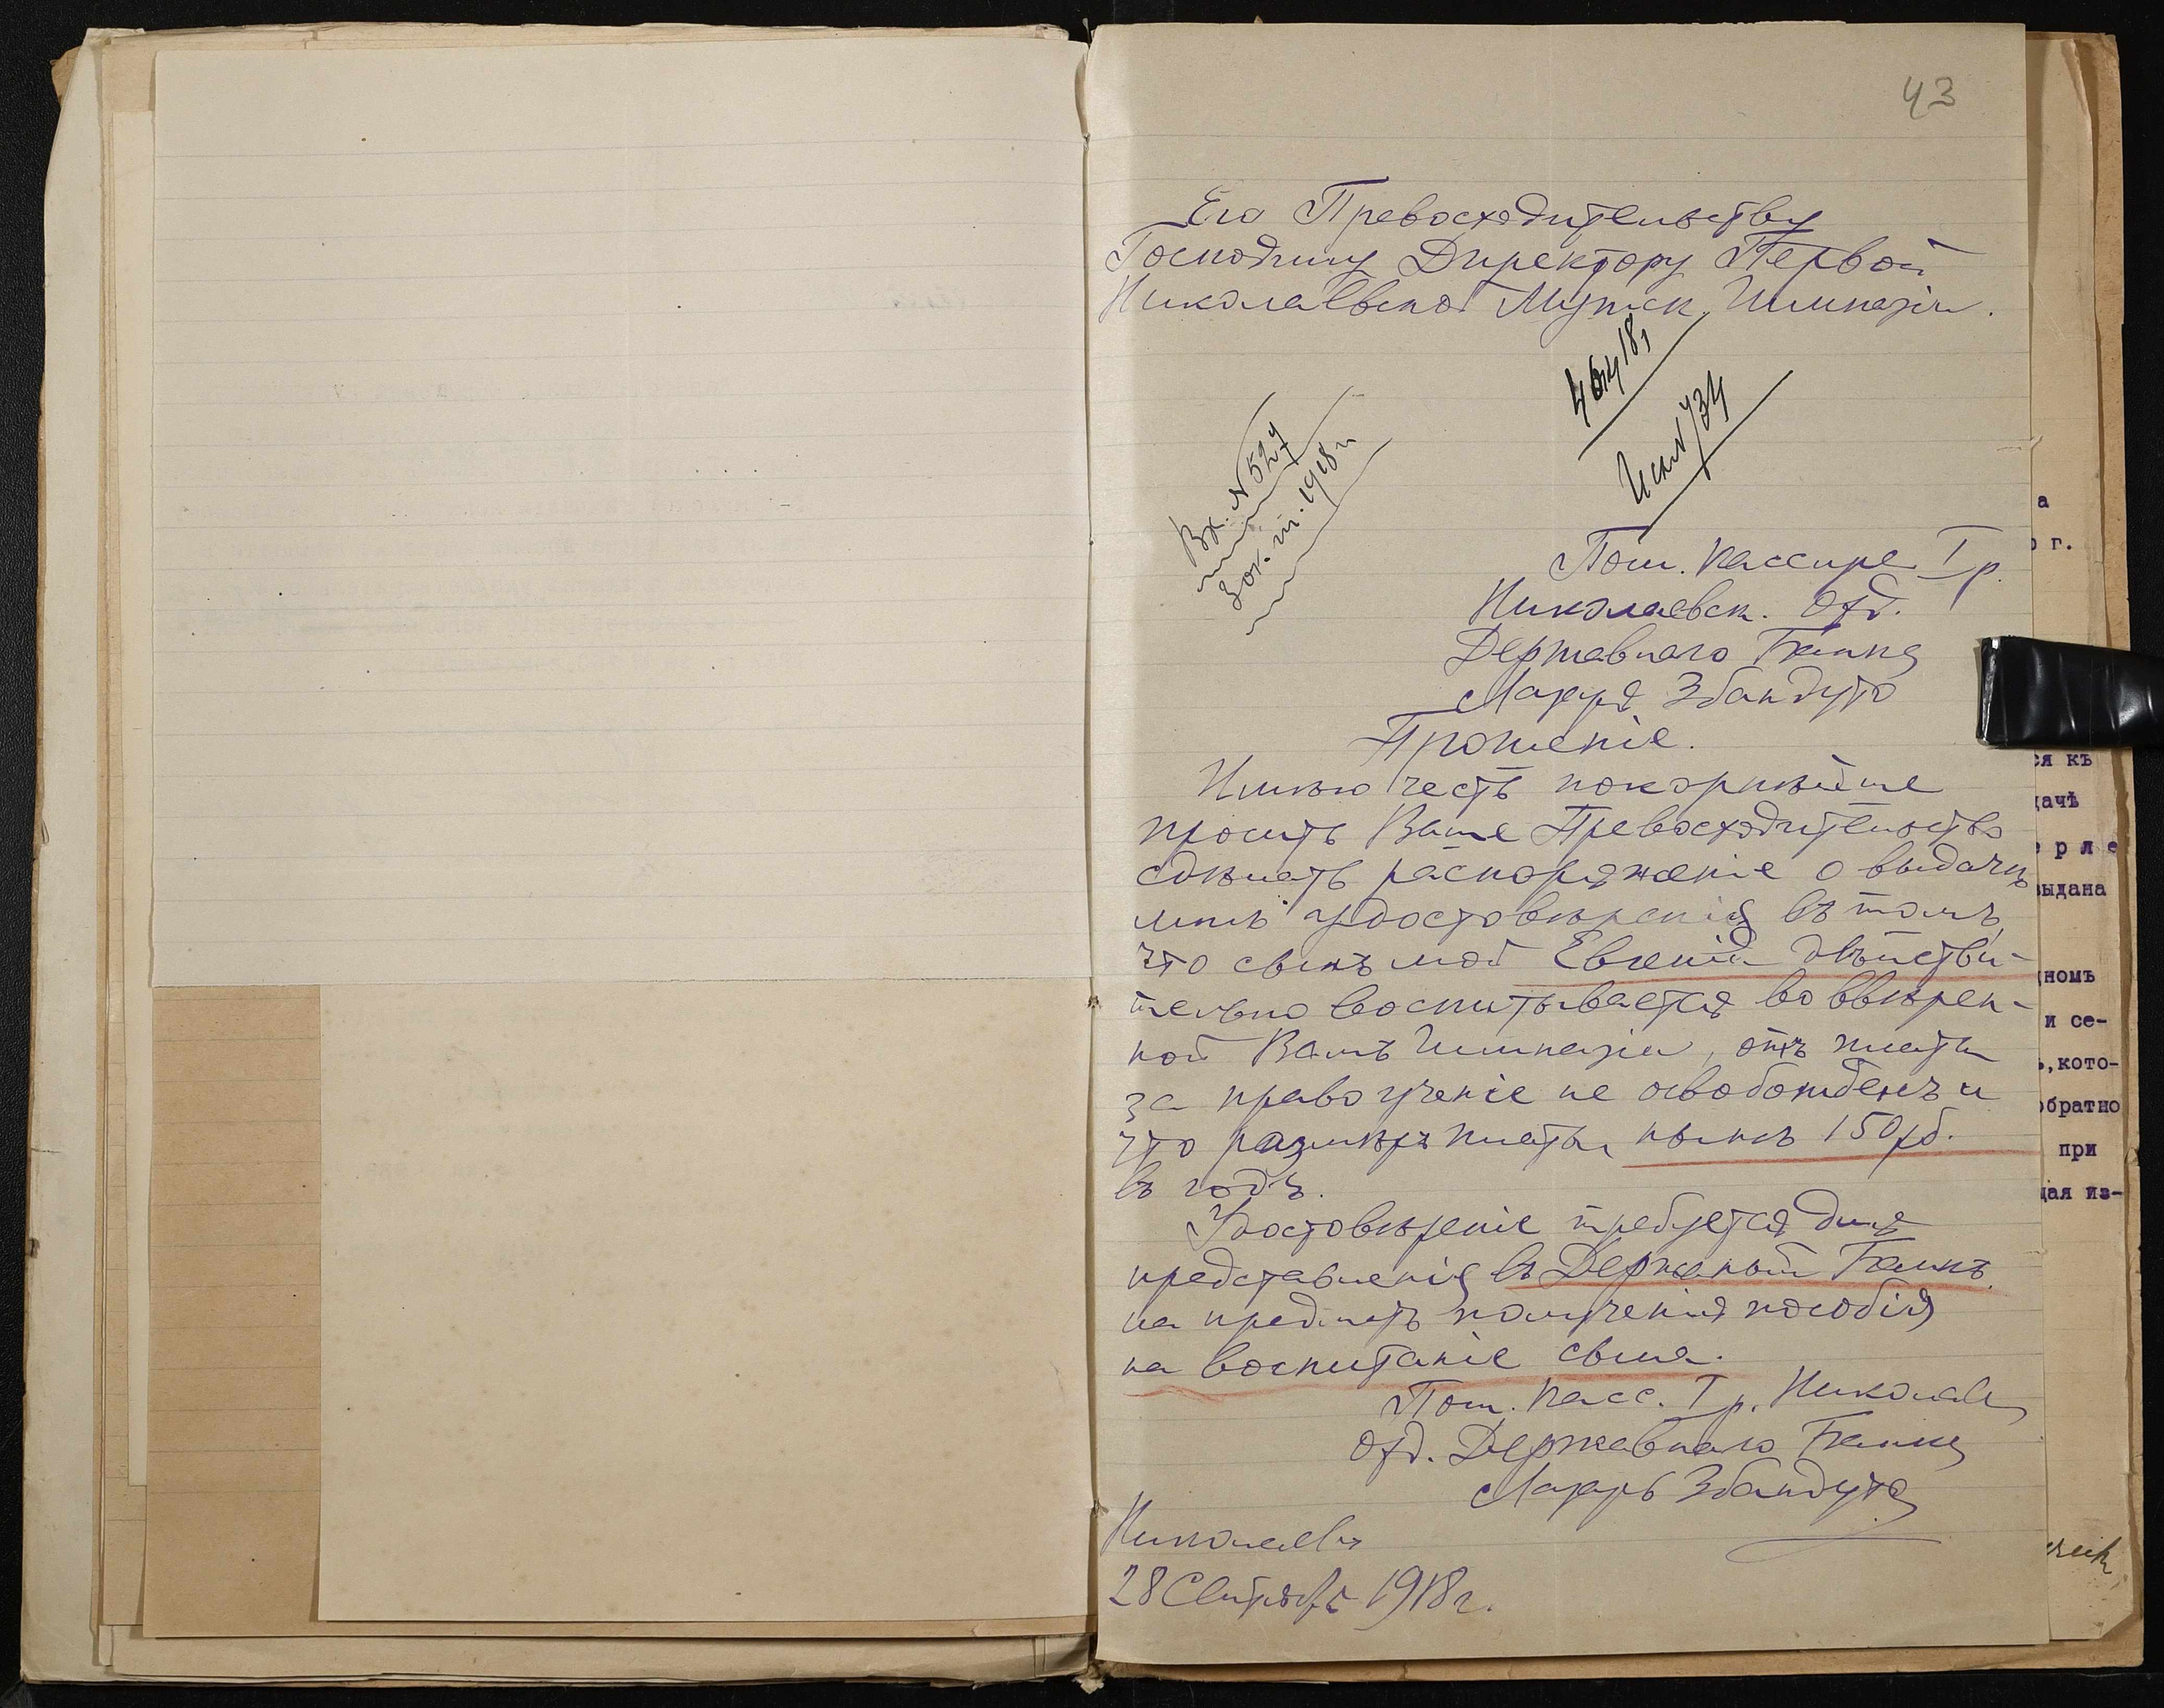 43
Его Превосходительству
Господину Директору Первой
Николаевской Мужск. Гимназіи.
4 окт 18 г
Исп. № 734
Вх. № 527
3 ок. м. 1918 г
Пом. Кассира I р.
Николаевск. Отд.
Державнаго Банка
Лазаря Збандуто
Прошеніе.
Имѣю честь покорнѣйше
просить Ваше Превосходительство
сдѣлать распоряженіе о выдачѣ
мнѣ удостовѣренія въ томъ,
что сынъ мой Евгеній дѣйстви-
тельно воспитывается во ввѣрен-
ной Вамъ Гимназіи, отъ платы
за правоученіе не освобожденъ и
что размѣръ платы нынѣ 150 рб.
въ годъ.
Удостовѣреніе требуется для
представленія въ Державный Банкъ
на предметъ полученія пособія
на воспитаніе сына.
Пом. Касс. I р. Николаев
Отд. Державнаго Банка
Лазарь Збандуто
Николаевъ
28 Сентября 1918 г.
а
г.
ся къ
дачѣ
ерле
выдана
дномъ
и се-
ъ, кото-
обратно
при
щая из-